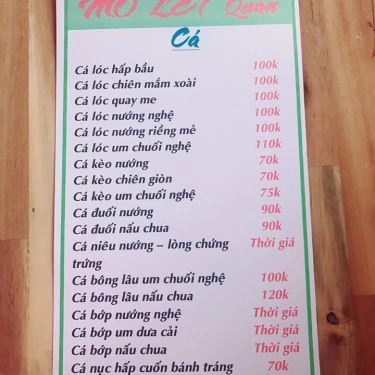 MO LET Quán
Cá
Cá lóc hấp bầu 100k
Cá lóc chiên mắm xoài 100k
Cá lóc quay me 100k
Cá lóc nướng nghệ 100k
Cá lóc nướng riềng mẻ 100k
Cá lóc um chuối nghệ 110k
Cá kèo nướng 70k
Cá kèo chiên giòn 70k
Cá kèo um chuối nghệ 75k
Cá đuối nướng 90k
Cá đuối nấu chua 90k
Cá niêu nướng – lòng chứng Thời giá
trứng
Cá bông lâu um chuối nghệ 100k
Cá bông lâu nấu chua 120k
Cá bớp nướng nghệ Thời giá
Cá bớp um dưa cải Thời giá
Cá bớp nấu chua Thời giá
Cá nục hấp cuốn bánh tráng 70k